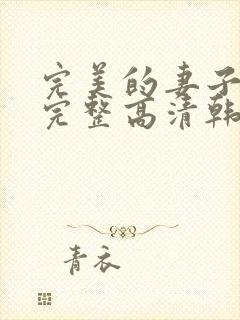 完美的妻子
完整高清韩
青衣